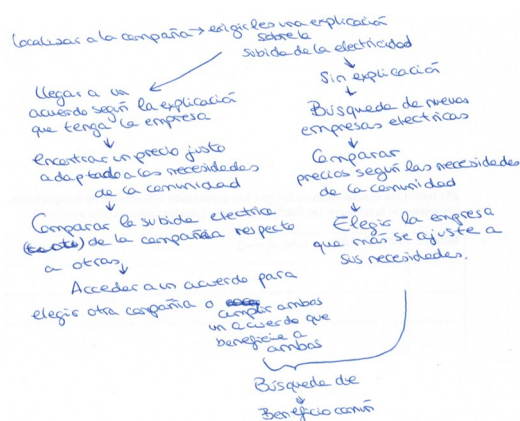 Localizar a la compañia → exigirles una explicación
sobre la
subida de la electricidad
Llegar a un
acuerdo según la explicación
que tenga la empresa
encontrar un precio justo
adaptado a las necesidades
de la comunidad
Comparar la subida electrica
de la compañia respecto
a otras
Acceder a un acuerdo para
elegir otra compañia o
cumplir ambas
un acuerdo que
beneficie a
ambas
Sin explicación
Búsqueda de nuevas
empresas electricas
Comparar
precios según las necesidades
de la comunidad
Elegir la empresa
que más se ajuste a
sus necesidades.
Búsqueda de
Beneficio común